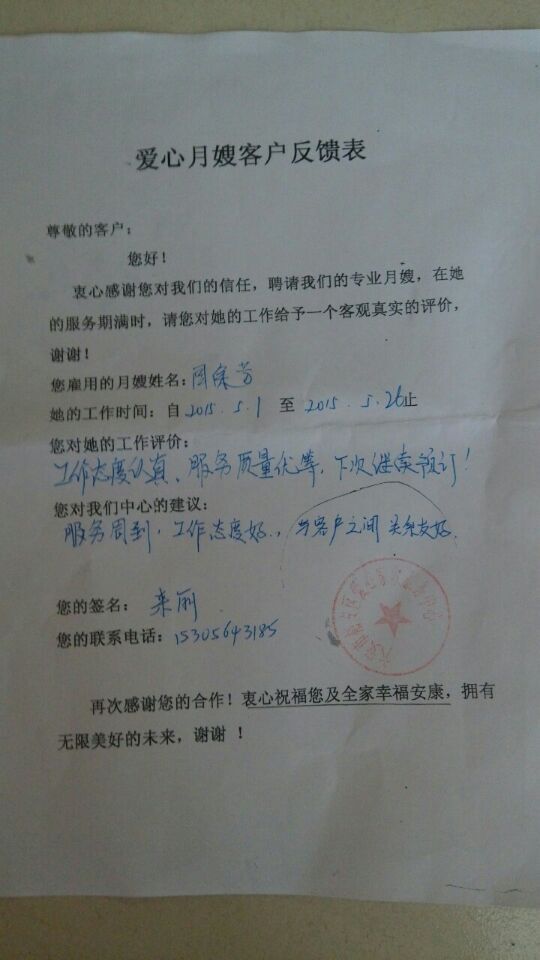 爱心月嫂客户反馈表
尊敬的客户：
您好！
衷心感谢您对我们的信任，聘请我们的专业月嫂，在她
的服务期满时，请您对她的工作给予一个客观真实的评价，
谢谢！
您雇用的月嫂姓名：周保芳
她的工作时间：自 2015.5.1 至 2015.5.26止
您对她的工作评价：
工作态度认真、服务质量优等，下次继续预订！
您对我们中心的建议：
服务周到，工作态度好.，与客户之间关系友好.
您的签名：来丽
您的联系电话：15305643185
再次感谢您的合作！衷心祝福您及全家幸福安康，拥有
无限美好的未来，谢谢 ！